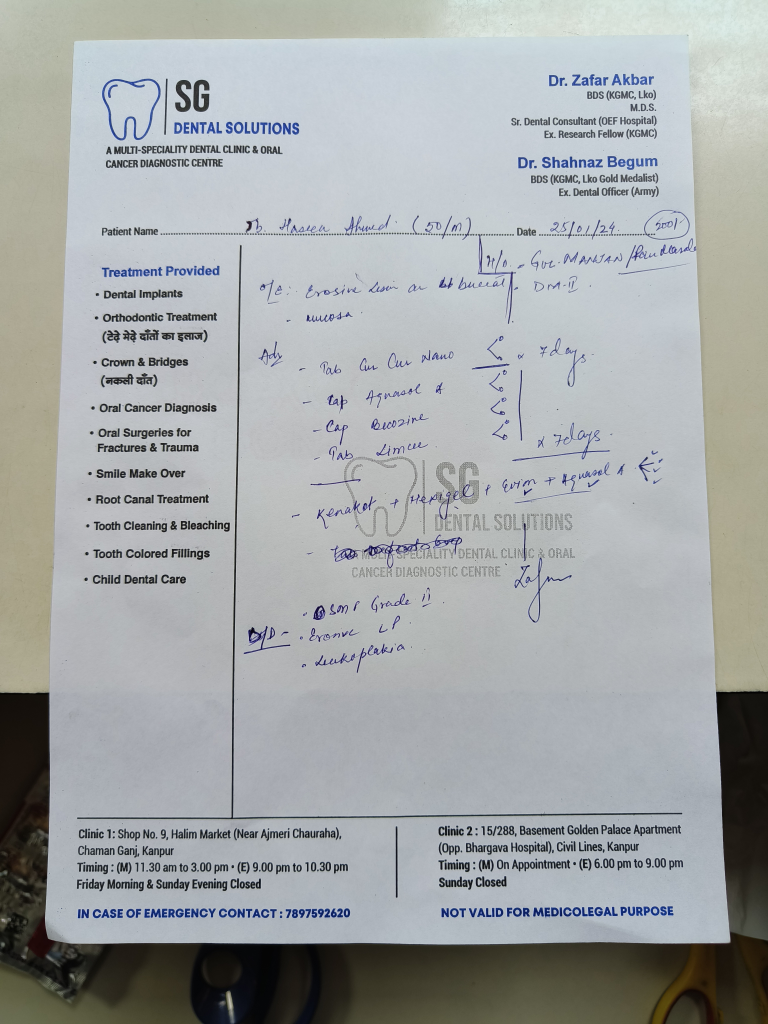 SG
DENTAL SOLUTIONS
A MULTI-SPECIALITY DENTAL CLINIC & ORAL
CANCER DIAGNOSTIC CENTRE
Dr. Zafar Akbar
BDS (KGMC, Lko)
M.D.S.
Sr. Dental Consultant (OEF Hospital)
Ex. Research Fellow (KGMC)
Dr. Shahnaz Begum
BDS (KGMC, Lko Gold Medalist)
Ex. Dental Officer (Army)
Patient Name Ahmed (50/m) Date 25/01/24 200/-
H/O - GUL-MANJAN /
DM-II
O/E:- Erosive buccal
mucosa
Adv
- Tab Cur Cur Nano < x 7 days
- Cap Aquasol A
- Cap Becozine
- Tab Limcee x 7 days
- Kenakot + Hexigel + Evion + Aquasol A
Zafar
D/D - . OSMF Grade II
. Erosive LP
. Leukoplakia
SG
DENTAL SOLUTIONS
A MULTI-SPECIALITY DENTAL CLINIC & ORAL
CANCER DIAGNOSTIC CENTRE
Treatment Provided
• Dental Implants
• Orthodontic Treatment
(टेढ़े मेढ़े दाँतों का इलाज)
• Crown & Bridges
(नकली दाँत)
• Oral Cancer Diagnosis
• Oral Surgeries for
Fractures & Trauma
• Smile Make Over
• Root Canal Treatment
• Tooth Cleaning & Bleaching
• Tooth Colored Fillings
• Child Dental Care
Clinic 1: Shop No. 9, Halim Market (Near Ajmeri Chauraha),
Chaman Ganj, Kanpur
Timing : (M) 11.30 am to 3.00 pm • (E) 9.00 pm to 10.30 pm
Friday Morning & Sunday Evening Closed
IN CASE OF EMERGENCY CONTACT : 7897592620
Clinic 2 : 15/288, Basement Golden Palace Apartment
(Opp. Bhargava Hospital), Civil Lines, Kanpur
Timing : (M) On Appointment • (E) 6.00 pm to 9.00 pm
Sunday Closed
NOT VALID FOR MEDICOLEGAL PURPOSE